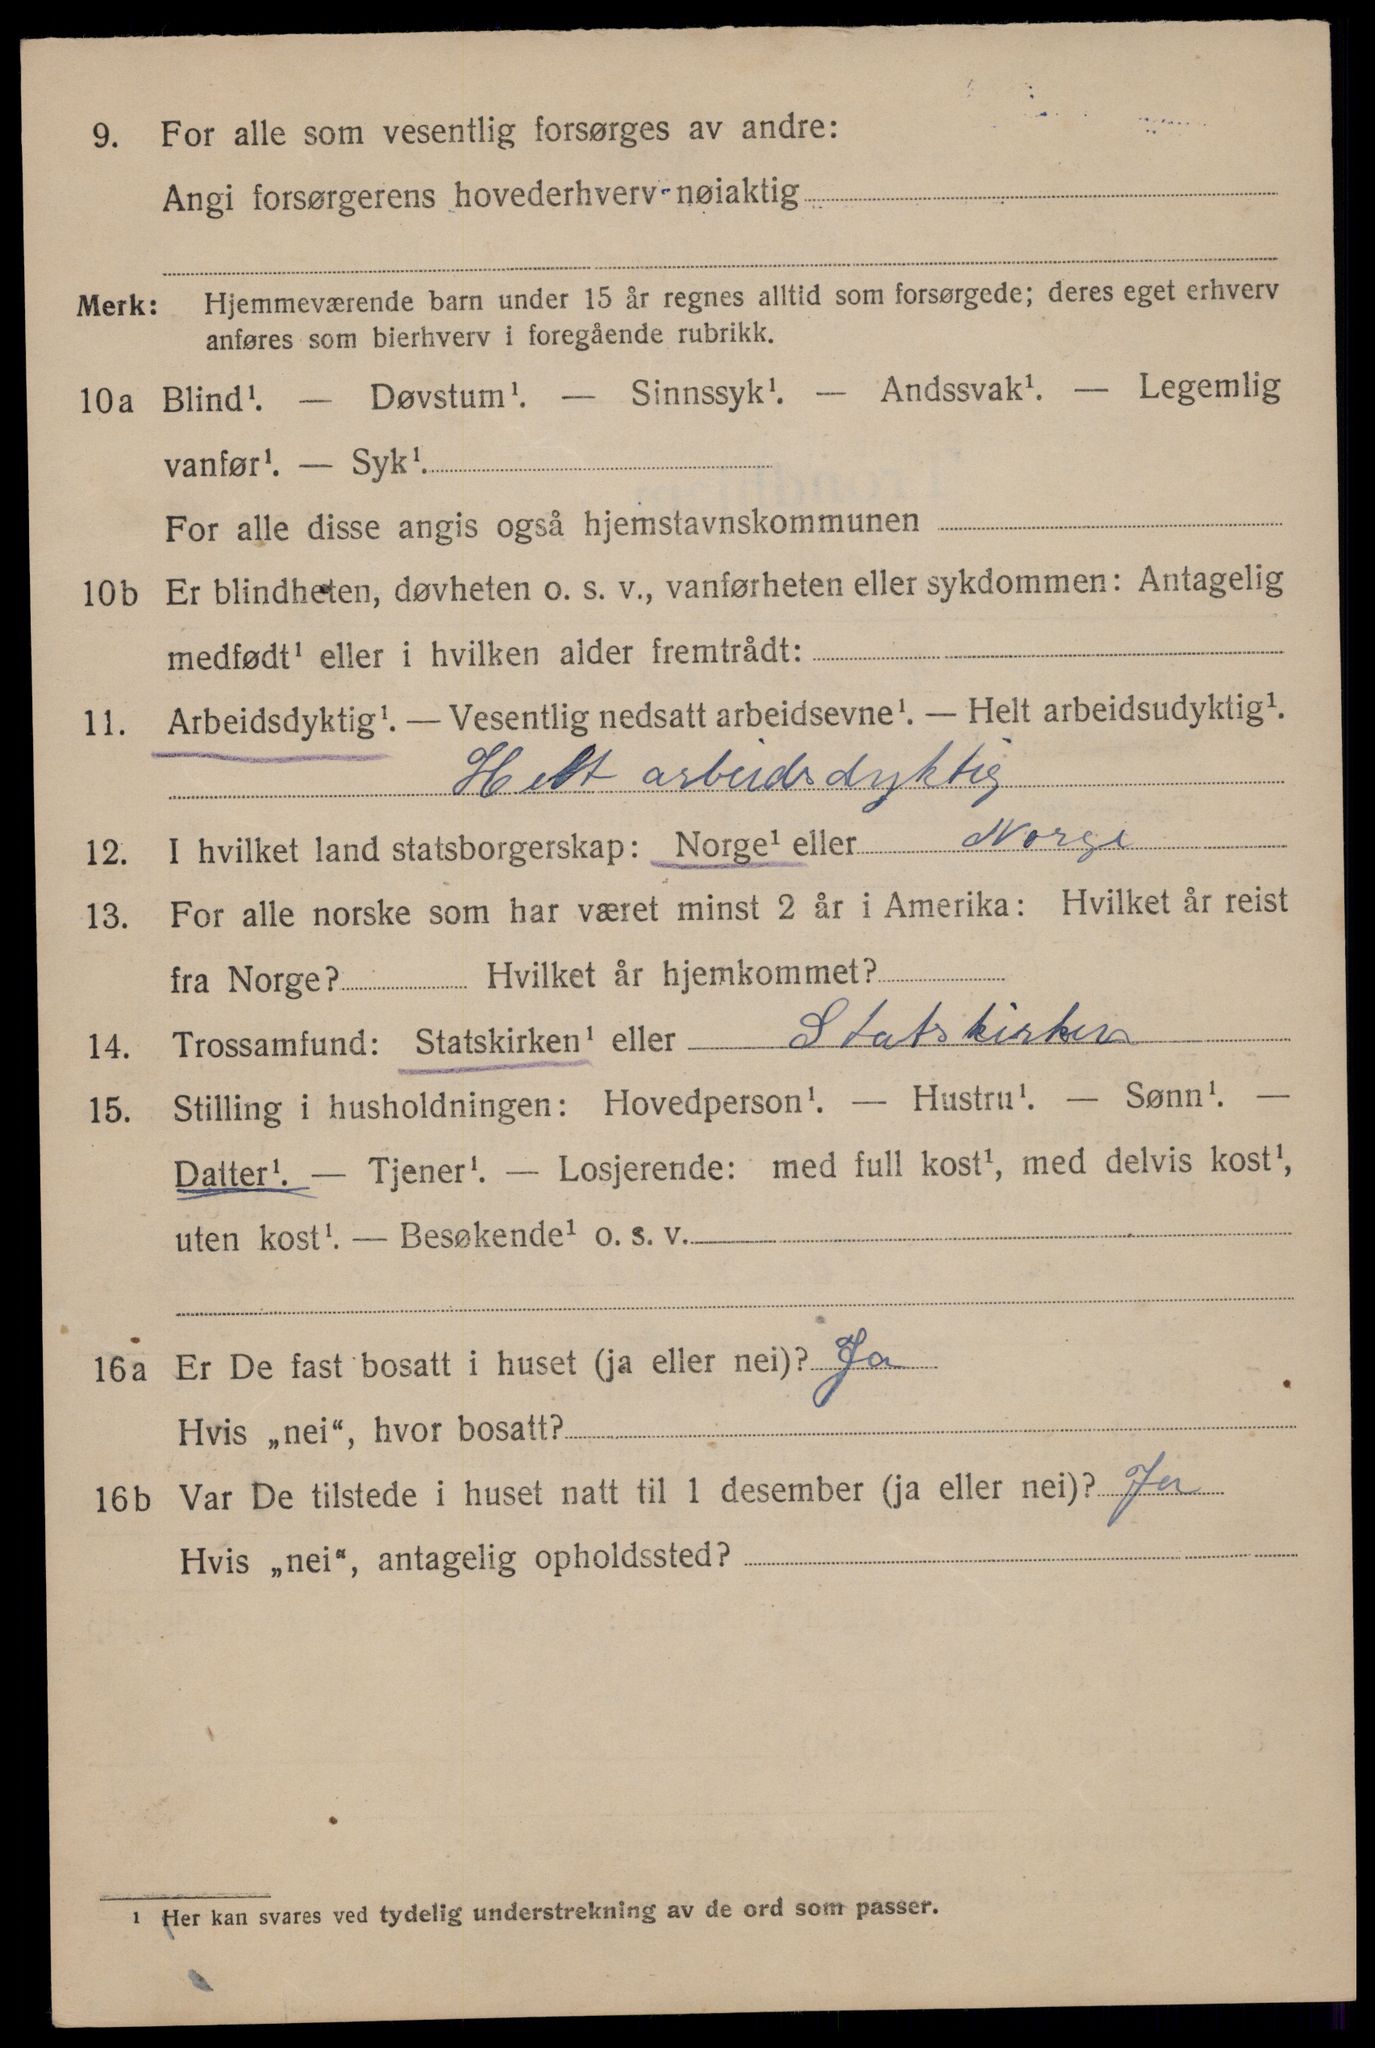 9. For alle som vesentlig forsørges av andre:
Angi forsørgerens hovederhverv nøiaktig
Merk: Hjemmeværende barn under 15 år regnes alltid som forsørgede; deres eget erhverv
anføres som bierhverv i foregående rubrikk.
10a Blind¹. — Døvstum¹. — Sinnssyk¹. — Andssvak¹. — Legemlig
vanfør¹. — Syk¹.
For alle disse angis også hjemstavnskommunen
10b Er blindheten, døvheten o. s. v., vanførheten eller sykdommen: Antagelig
medfødt¹ eller i hvilken alder fremtrådt:
11. Arbeidsdyktig¹. — Vesentlig nedsatt arbeidsevne¹. — Helt arbeidsudyktig¹.
Helt arbeidsdyktig
12. I hvilket land statsborgerskap: Norge¹ eller Norge
13. For alle norske som har været minst 2 år i Amerika: Hvilket år reist
fra Norge? Hvilket år hjemkommet?
14. Trossamfund: Statskirken¹ eller Statskirken
15. Stilling i husholdningen: Hovedperson¹. — Hustru¹. — Sønn¹. —
Datter¹. — Tjener¹. — Losjerende: med full kost¹, med delvis kost¹,
uten kost¹. — Besøkende¹ o. s. v.
16a Er De fast bosatt i huset (ja eller nei)? Ja
Hvis „nei“, hvor bosatt?
16b Var De tilstede i huset natt til 1 desember (ja eller nei)? Ja
Hvis „nei“, antagelig opholdssted?
¹ Her kan svares ved tydelig understrekning av de ord som passer.